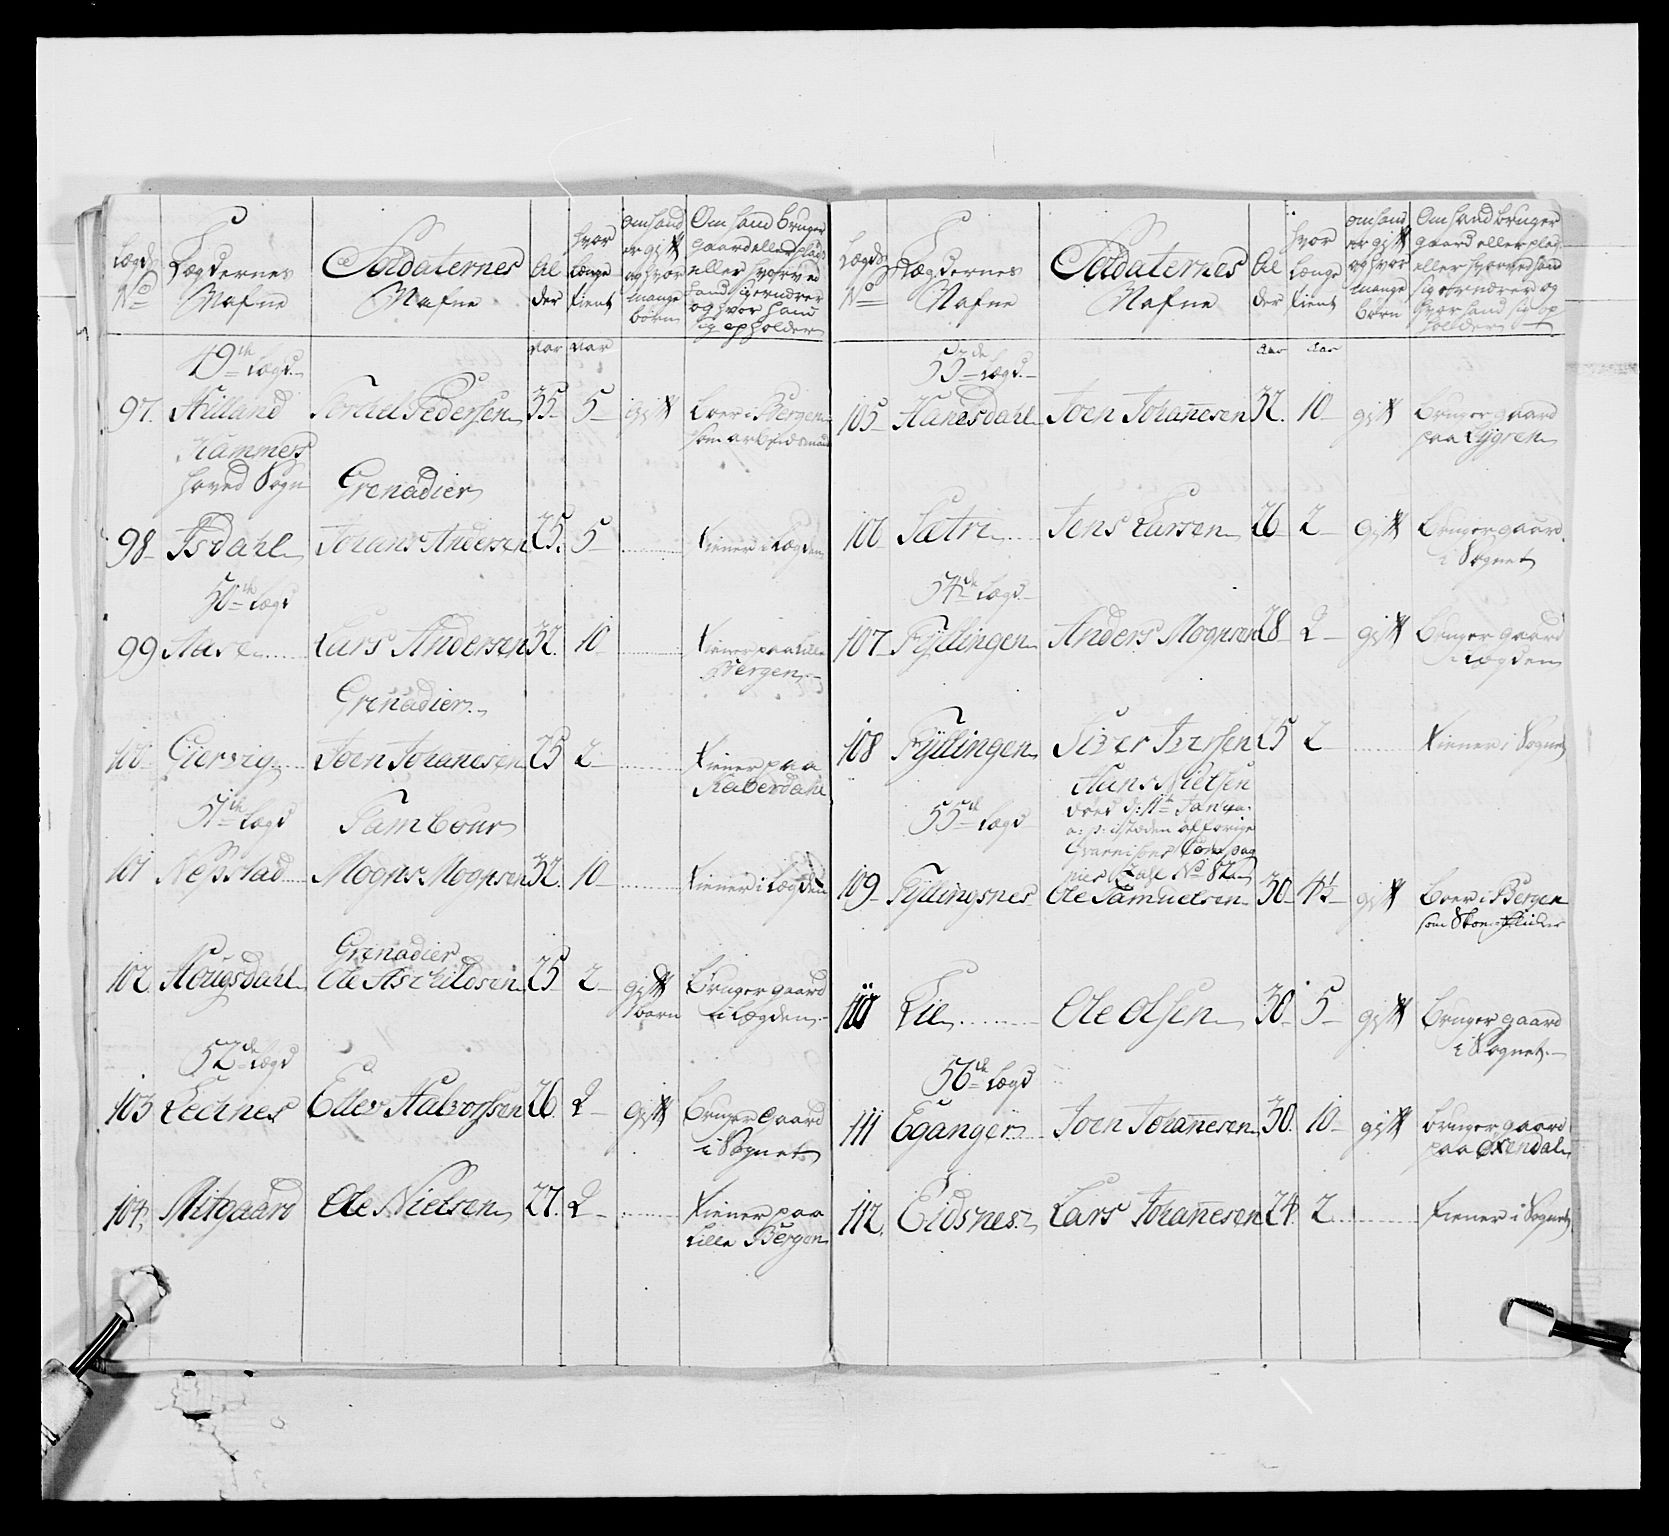 Lægds No
Lægdernes Nafne
Soldaternes Nafne
Al der
hvor længe tient
om hand er gift og hvor mange børn
Om hand bruger gaard eller plads eller hvorved hand sig ernærer og hvor hand sig opholder
aar aar
49de Lægd
97. Auland Torchel Pedersen 35 5 gift boer i Bergen
som arbeidsmand
Hammers
hoved Sogn Grenadier
98 Isdahl Johans Andersen 25. 5 tiener i Lægden
50de Lægd
99 Aase Lars Andersen 32. 10 tiener paa Lille
Bergen
Grenadier
100 Giervig Joen Johanesen 25 2 tiener paa
51de Lægd Tambour
101 Nesstad Mogns Mognsen 32. 10 tiener i Lægden
Grenadier
102. Hougsdahl Ole Aschildsen 25 2 gift bruger gaard
barn i Lægden
52de Lægd
103 Lechnes Eller Halvorssen 26. 2 gift bruger Gaard
i Sognet
104. Mitgaard Ole Nielsen 27. 2 tiener paa
Lille Bergen
Lægds No
Lægdernes Nafne
Soldaternes Nafne
Al der
hvor længe tient
om hand er gift og hvor mange børn
Om hand bruger gaard eller plads eller hvorved hand sig ernærer og hvor hand sig opholder
aar aar
53de Lægd
105 Hanesdahl Joen Johanesen 32. 10 gift bruger gaard
paa Lygren
106 Sætre Jens Larsen 26 2 gift bruger gaard
i Sognet
54de Lægd
107 Fyllingen Anders Mognsen 28 2 gift bruger gaard
i Lægden
108 Fyllingen Siver Iversen 25 2 tiener i Sognet
Hans Nielsen
55de Lægd døed d: 11te Janua.
a: p: istæden af forige
Guarnisons Compag
109 Fyllingsnes Ole Samuelsen 30 4½ gift boer i Bergen
som Skoe flicker
110 Lie Ole Olsen 30 5 gift bruger gaard
i Sognet
56de Lægd
111 Eganger Joen Johanesen 30. 10 gift bruger gaard
paa Oxendal
112. Eidsnes Lars Johanesen 24. 2 tiener i Sognet